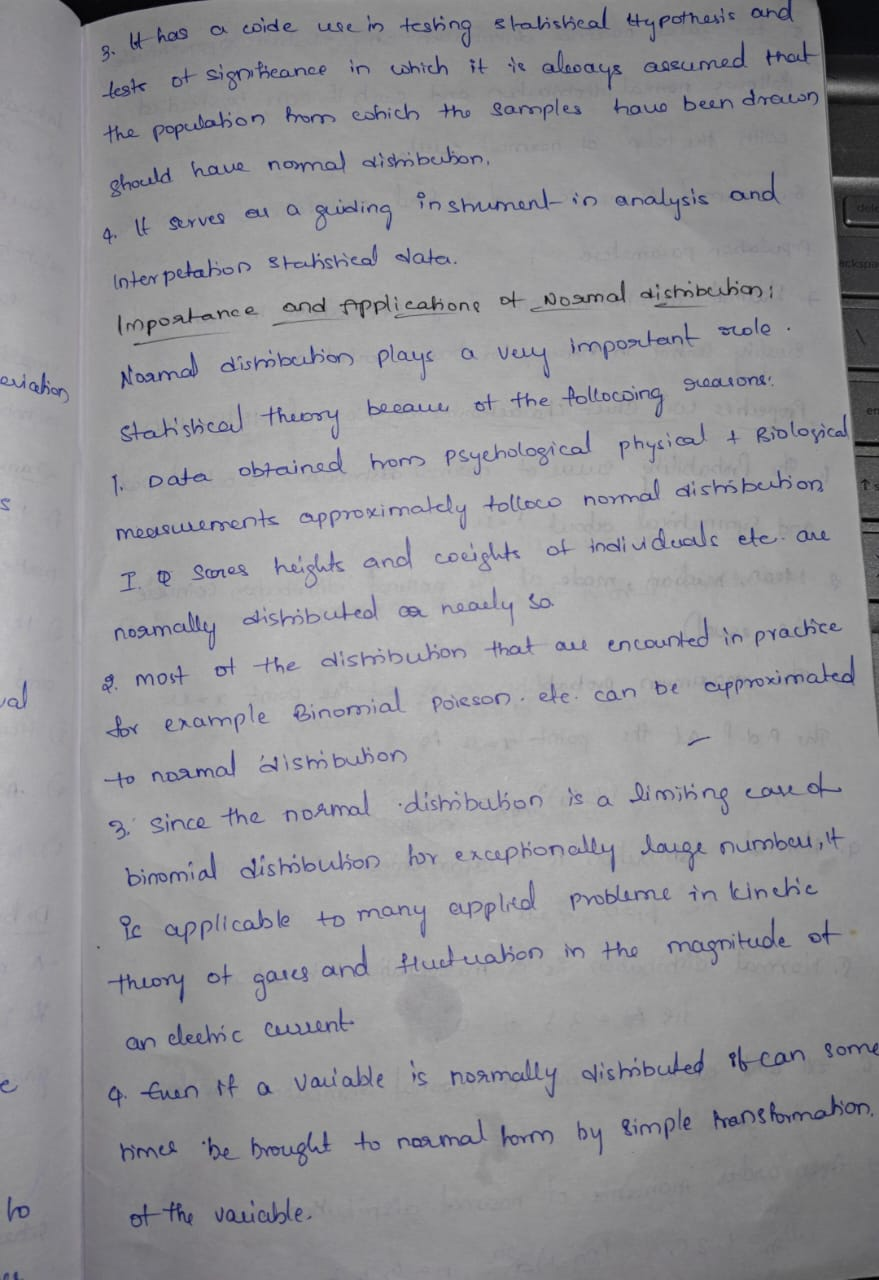 3. It has a wide use in testing statistical Hypothesis and
tests of significance in which it is always assumed that
the population from which the samples have been drawn
should have normal distribution.
4. It serves as a guiding instrument in analysis and
Interpetation statistical data.
Importance and Applications of Normal distribution:
Normal distribution plays a very important role.
statistical theory because of the following reasons:
1. Data obtained from psychological physical + Biological
measurements approximately follow normal distribution
I.Q scores heights and weights of individuals etc. are
normally distributed or nearly so
2. most of the distribution that are encounted in practice
for example Binomial Poisson. etc. can be approximated
to normal distribution
3. Since the normal distribution is a limiting case of
binomial distribution for exceptionally large number, it
is applicable to many applied problems in kinetic
theory of gases and fluctuation in the magnitude of
an electric current
4. Even if a variable is normally distributed it can some
times be brought to normal form by simple transformation.
of the variable.
eviation
s
val
e
to